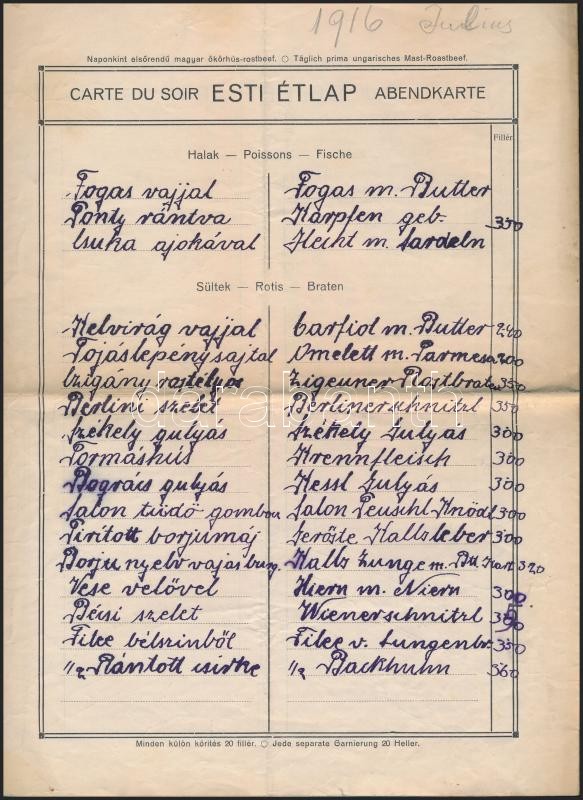 1916 Julius
Naponkint elsőrendű magyar ökörhús-rostbeef. ○ Täglich prima ungarisches Mast-Roastbeef.
CARTE DU SOIR ESTI ÉTLAP ABENDKARTE
Fillér
Halak — Poissons — Fische
Fogas vajjal Fogas m. Butter
Ponty rántva Karpfen geb. 350
Csuka ajokával Hecht m. Sardeln
Sültek — Rotis — Braten
Kelvirág vajjal Carfiol m. Butter 240
Tojáslepény sajtal Omelett m. Parmesa 200
Czigány rostélyos Zigeuner Rostbraten 350
Berlini szelet Berlinerschnitzl 350
Székely gulyás Székely Gulyas 300
Tormáshús Krennfleisch 300
Bogrács gulyás Kessl Gulyás 300
Salon tüdő gombou Salon Peuschl Knödl 300
Pirított borjumáj Geröste Kalbsleber 300
Borju nyelv vajas burg. Kalbs Zunge m. Btt. Kart 320
Vese velővel Hiern m. Niern 300
Bécsi szelet Wienerschnitzl
Filee bélszinből Filee v. Lungenbr. 350
1/2 Rántott csirke 1/2 Backhuhn 360
Minden külön körítés 20 fillér. ○ Jede separate Garnierung 20 Heller.
darabanth